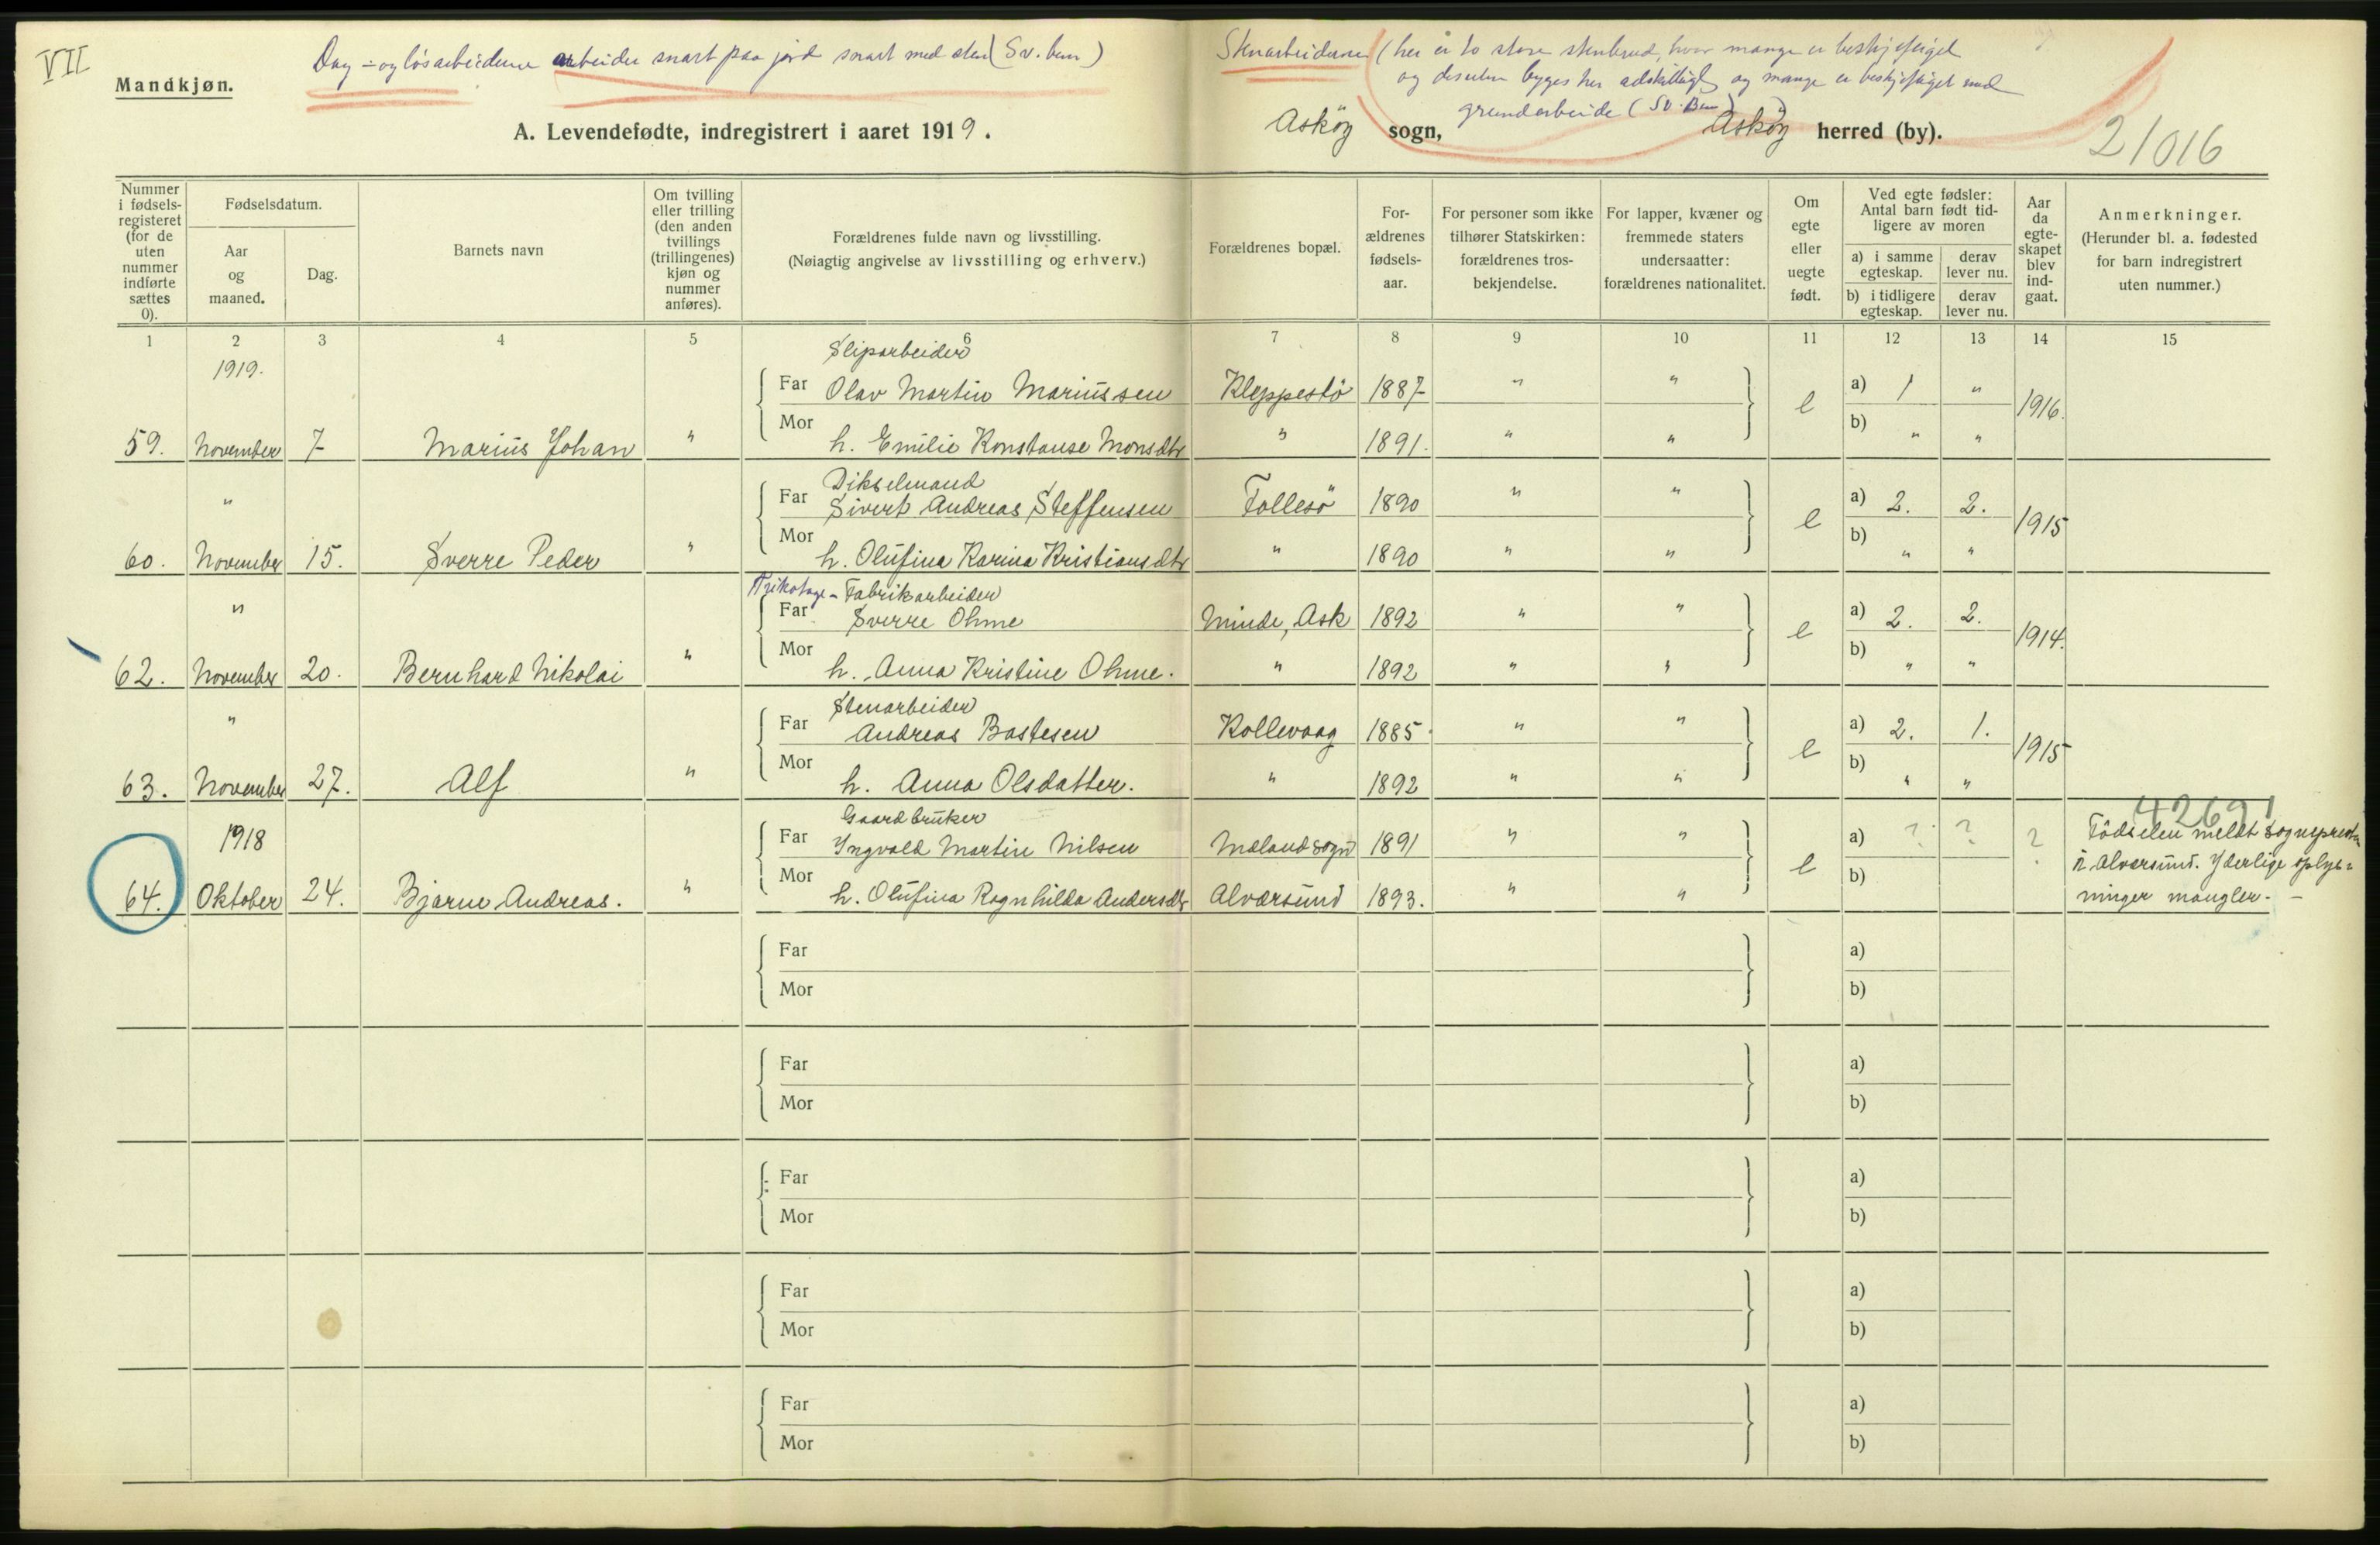 VII
Dag- og løsarbeiderne arbeider snart paa jord snart med sten (Sv. bem)
Mandkjøn.
A. Levendefødte, indregistrert i aaret 1919.
Stenarbeiderne (her er to store stenbrud, hvor mange er beskjæftiget
og desuten bygges her adskilligt og mange er beskjæftiget med
grundarbeide (Sv. Bem)
Askøy sogn, Askøy herred (by).
21016
Nummer i fødsels-registeret (for de uten nummer indførte sættes 0).
Fødselsdatum.
Aar og maaned.
Dag.
Barnets navn
Om tvilling eller trilling (den anden tvillings (trillingenes) kjøn og nummer anføres).
Forældrenes fulde navn og livsstilling.
(Nøiagtig angivelse av livsstilling og erhverv.)
Forældrenes bopæl.
For-ældrenes fødsels-aar.
For personer som ikke tilhører Statskirken: forældrenes tros-bekjendelse.
For lapper, kvæner og fremmede staters undersaatter: forældrenes nationalitet.
Om egte eller uegte født.
Ved egte fødsler: Antal barn født tid-ligere av moren
a) i samme egteskap.
derav lever nu.
b) i tidligere egteskap.
derav lever nu.
Aar da egte-skapet blev ind-gaat.
Anmerkninger.
(Herunder bl. a. fødested for barn indregistrert uten nummer.)
1 2 3 4 5 6 7 8 9 10 11 12 13 14 15
1919.
Sliparbeider
Far Olav Martin Mariussen Kleppestö 1887 " " e a) 1 " 1916.
59. November 7 Marius Johan " Mor h. Emilie Konstanse Monsdtr " 1891. " " b) " "
"
Dikselmand
Far Sivert Andreas Steffensen Follesö 1890 " " e a) 2. 2. 1915
60. November 15. Sverre Peder " Mor h. Olufina Karina Kristiansdtr " 1890 " " b) " "
Trikotage- Fabrikarbeider
" Far Sverre Ohme Minde, Ask 1892 " " e a) 2. 2. 1914.
62. November 20. Bernhard Nikolai " Mor h. Anna Kristine Ohme. " 1892 " " b) " "
"
Stenarbeider
Far Andreas Bastesen Kollevaag 1885 " " e a) 2. 1. 1915
63. November 27. Alf " Mor h. Anna Olsdatter. " 1892 " " b) " "
42691
1918
Gaardbruker
Far Yngvald Martin Nilsen Mælandsogn 1891 " " e a) ? ? ? Födselen meldt sogneprest
64. Oktober 24. Bjarne Andreas. " Mor h. Olufina Ragnhilda Andersdtr Alværsund 1893. " " b) i Alværsund. Yderlige oplys-
ninger mangler. -
Far a)
Mor b)
Far a)
Mor b)
Far a)
Mor b)
Far a)
Mor b)
Far a)
Mor b)